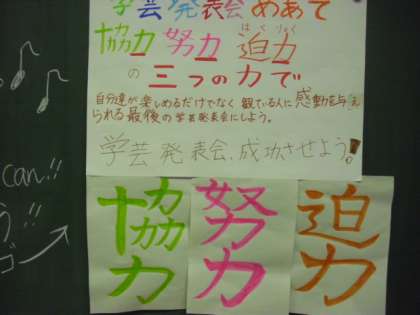 学芸発表会めあて
協力 努力 迫力
はくりょく
の三つの力で
自分達が楽しめるだけでなく観ている人に感動を与え
られる最後の学芸発表会にしよう。
学芸発表会、成功させよう!
can!!
う!!
協力
努力
迫力